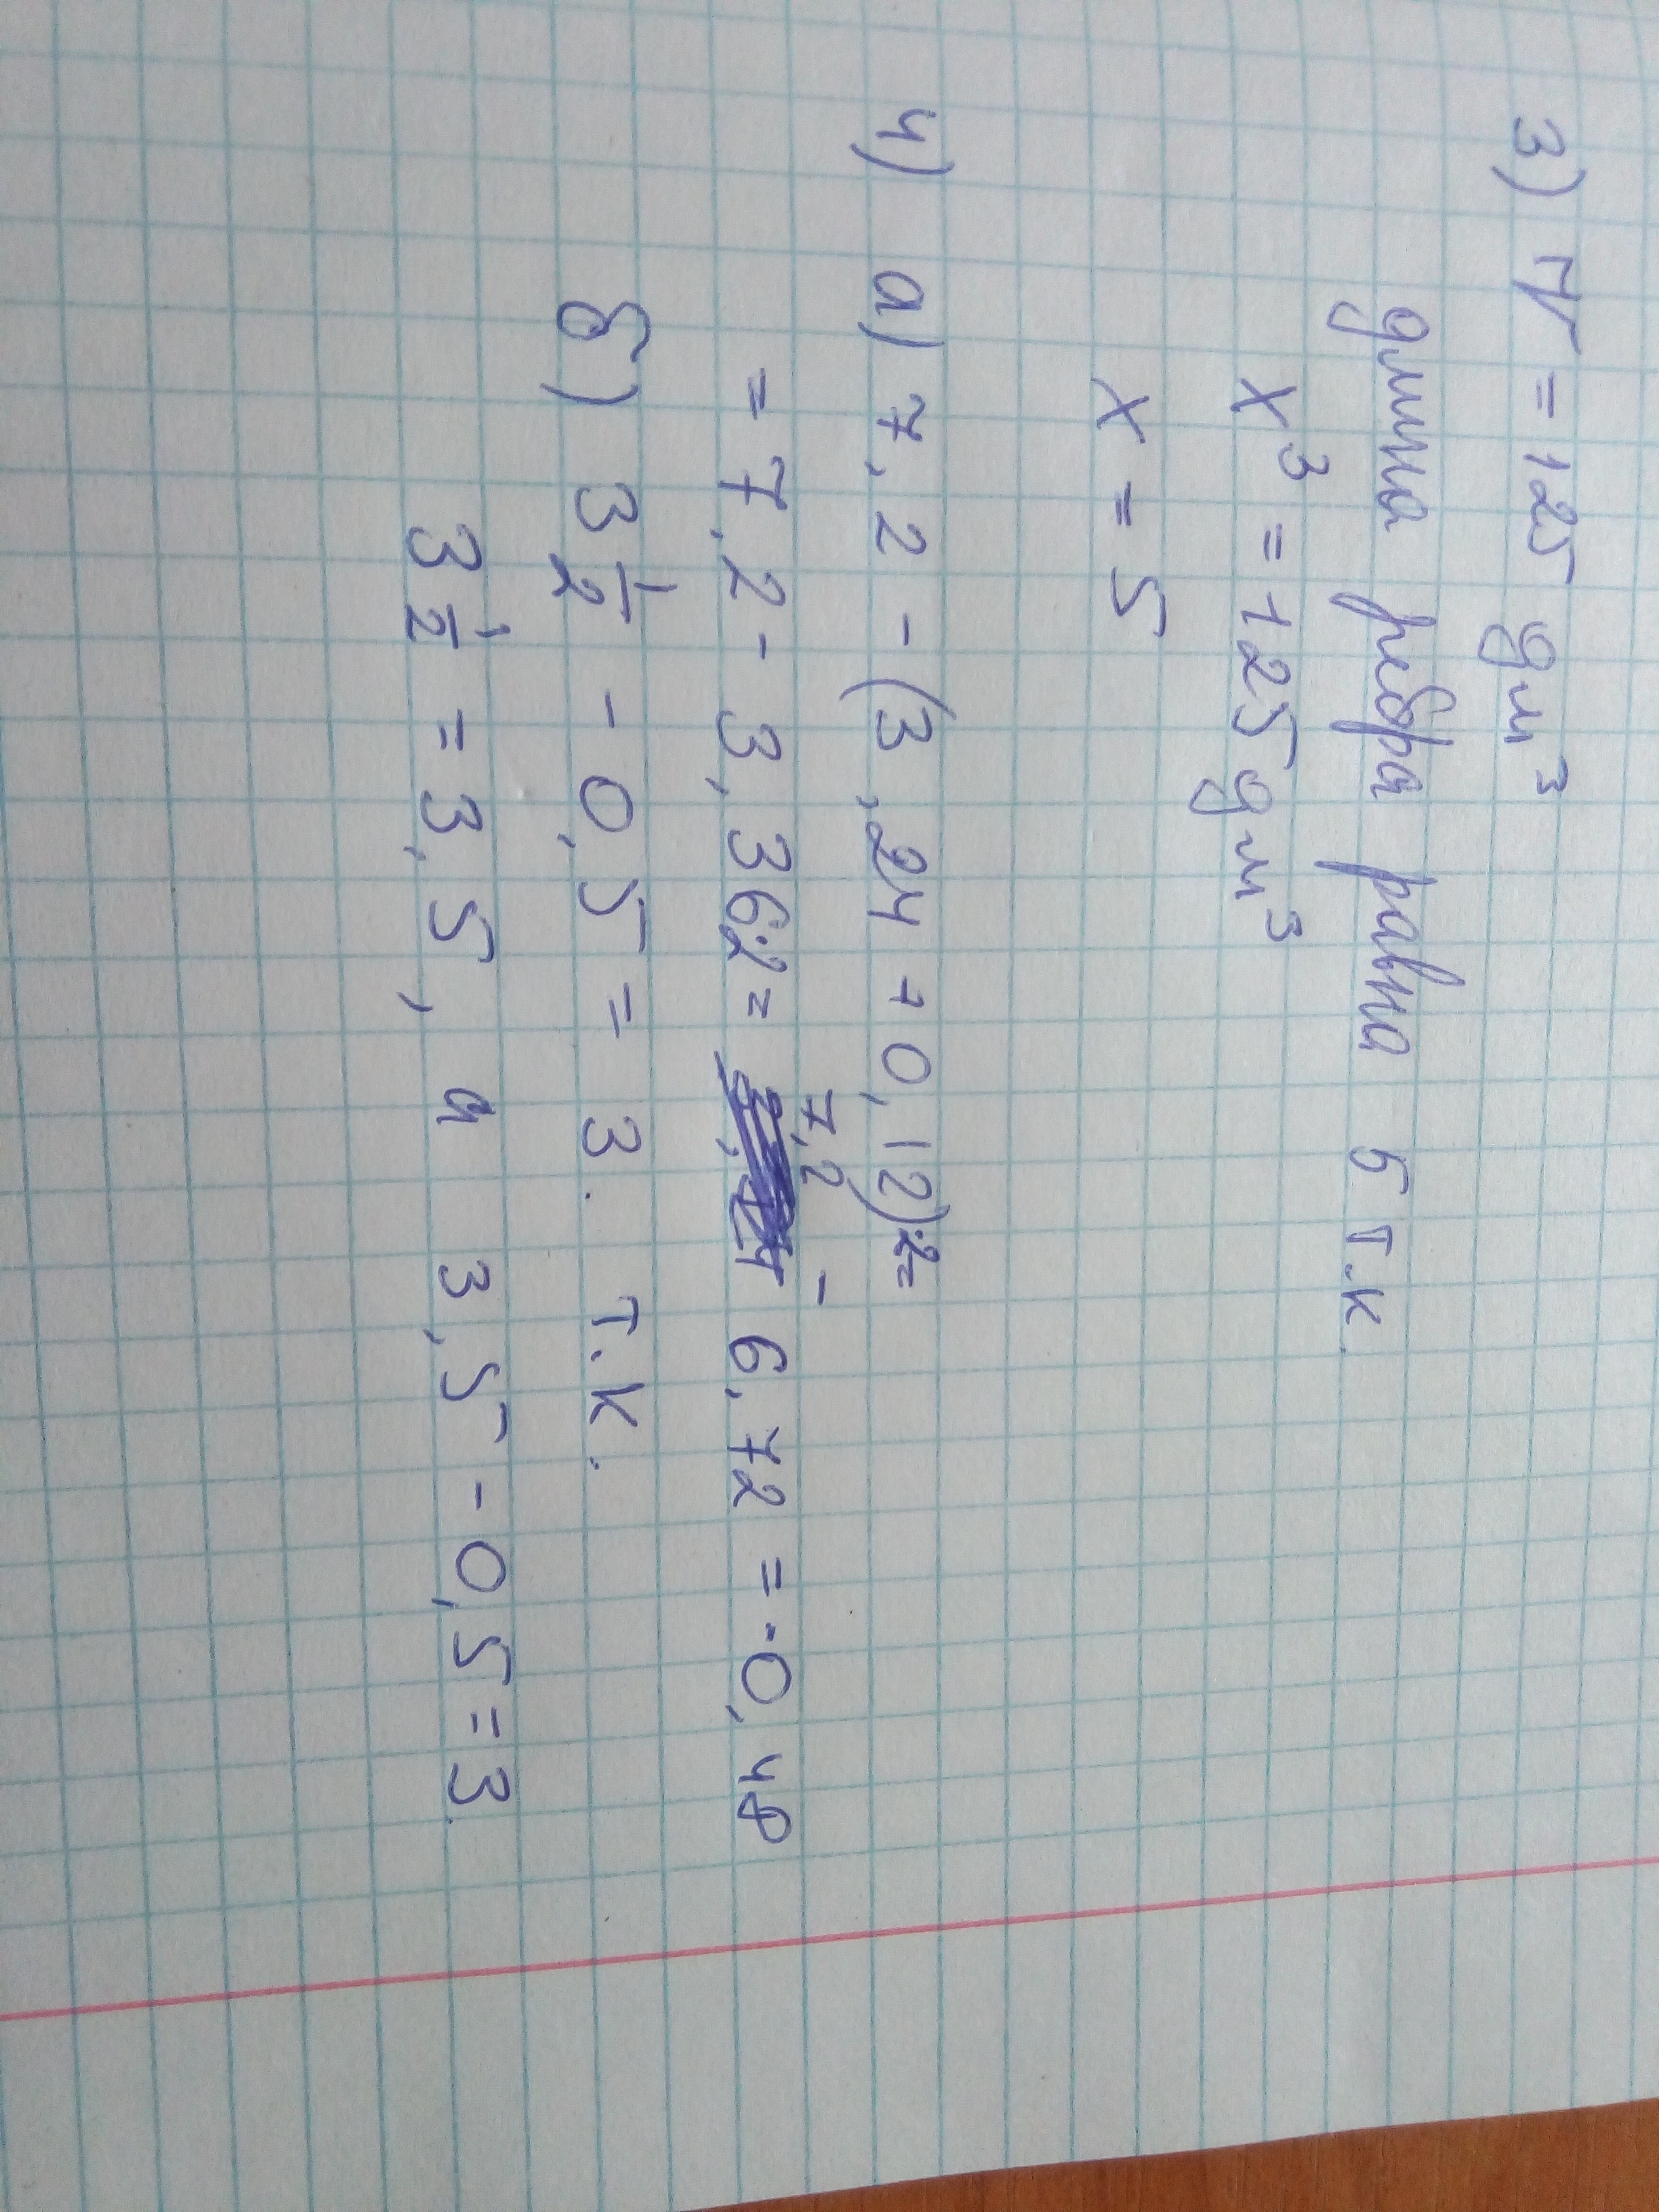 3) V = 125 дм³
длина ребра равна 5 т.к.
x³ = 125 дм³
x = 5
4) а) 7,2 - (3,24 + 0,12)·2=
= 7,2 - 3,36·2 = 7,2 - 6,72 = -0,48
б) 3 1/2 - 0,5 = 3. т.к.
3 1/2 = 3,5, а 3,5 - 0,5 = 3.